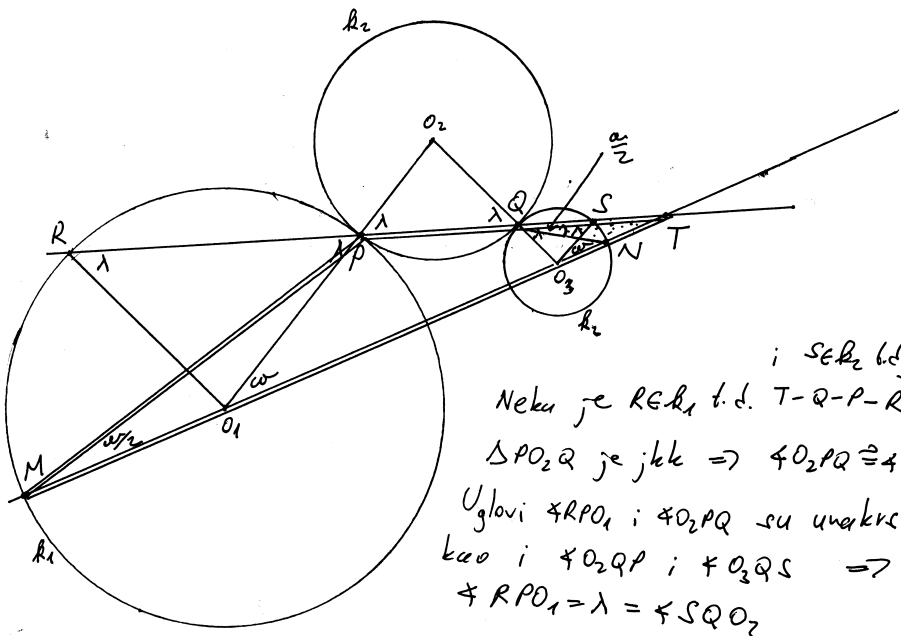 k₂
O₂
α/2
R
λ
λ
P
λ
Q
λ
S
T
N
ω
O₃
k₂
ω
O₁
ω/2
M
k₁
i S∈k₂ t.d.
Neka je R∈k₁ t.d. T-Q-P-R
ΔPO₂Q je jkk => ∢O₂PQ ≅ ∢
Uglovi ∢RPO₁ i ∢O₂PQ su unakrs
kao i ∢O₂QP i ∢O₃QS =>
∢RPO₁ = λ = ∢SQO₂